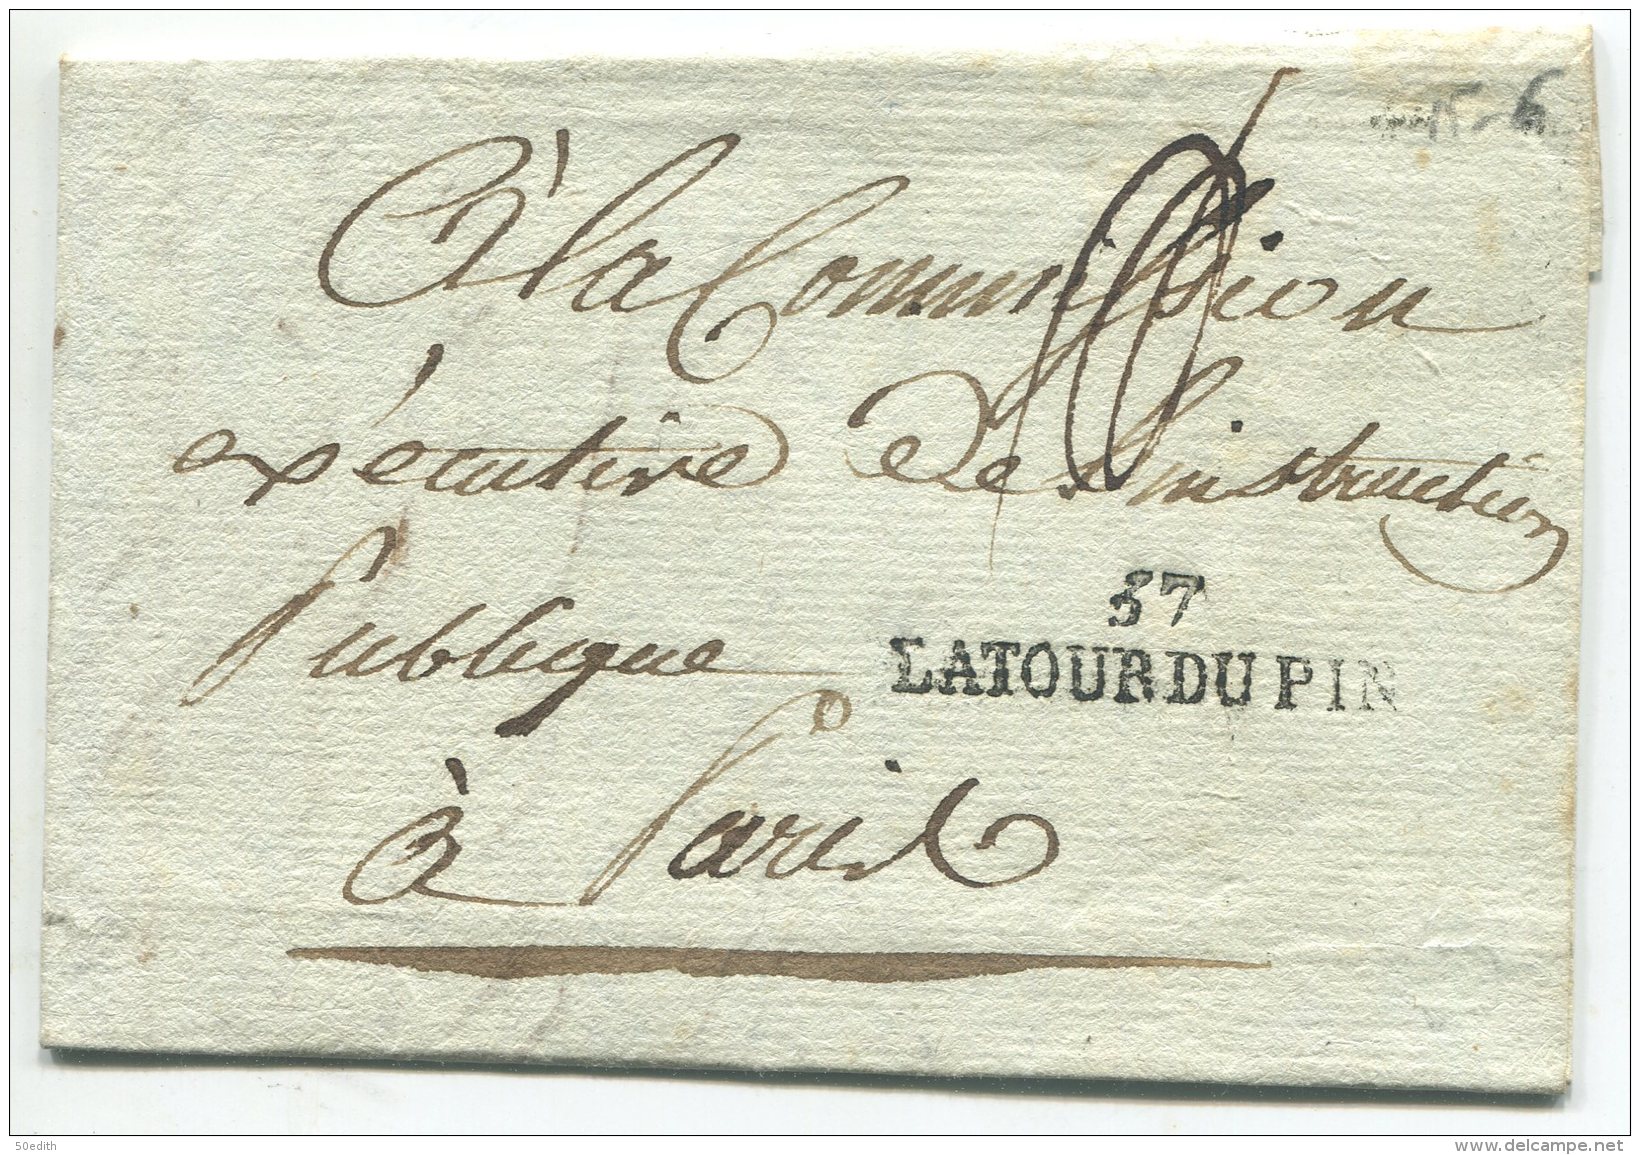 15-6
à la Commission
exécutive de l'instruction
publique
37
LATOURDUPIN
à Paris
50edith
www.delcampe.net